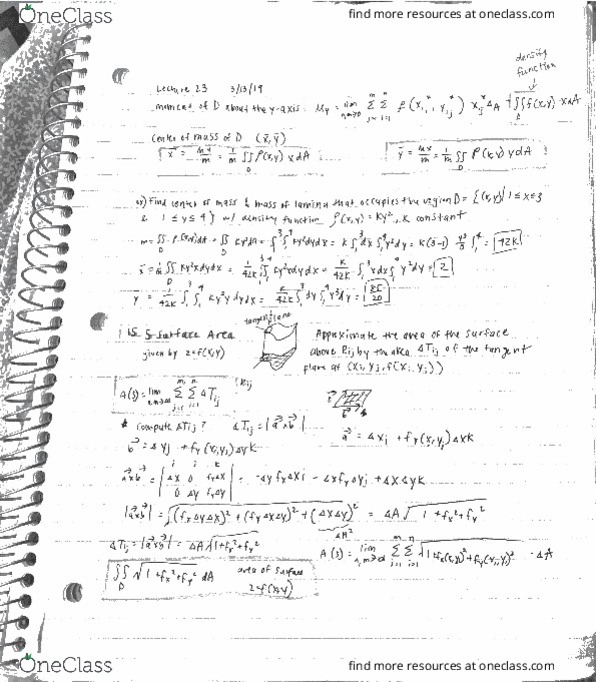 OneClass
find more resources at oneclass.com
density
function
Lecture 23 3/13/19
moment of D about the y-axis: My = lim Σ Σ ρ(x*ij, y*ij) x*ij ΔA = ∬ρ(x,y) x dA
center of mass of D (x̄,ȳ)
x̄ = My/m = 1/m ∬ ρ(x,y) x dA
ȳ = Mx/m = 1/m ∬ ρ(x,y) y dA
ex) Find center of mass & mass of lamina that occupies the region D = {(x,y)| 1 ≤ x ≤ 3
& 1 ≤ y ≤ 4} w/ density function ρ(x,y) = Ky², K constant
m = ∬ ρ(x,y)dA = ∬ Ky² dA = ∫₁³∫₁⁴ Ky² dydx = K∫₁³dx∫₁⁴y²dy = K(3-1) y³/3 |₁⁴ = 42K
x̄ = 1/m ∬ Ky²xdydx = 1/42K ∫₁³∫₁⁴ Ky²xdydx = K/42K ∫₁³xdx∫₁⁴y²dy = 2
y = 1/42K ∫₁³∫₁⁴ Ky²ydydx = K/42K ∫₁³dy∫₁⁴y³dy = 85/20
tangent plane
15.5 Surface Area
given by z=f(x,y)
Approximate the area of the surface
above Rij by the area ΔTij of the tangent
plane at (xi, yj, f(xi, yj))
A(S) = lim Σ Σ ΔTij
Rij
* compute ΔTij? ΔTij = |a×b|
a = Δxi + fx(xi,yj)Δxk
b = Δyj + fy(xi,yj)Δyk
a×b = | i j k / Δx 0 fxΔx / 0 Δy fyΔy | = -Δy fxΔxi - Δxfy Δyj + ΔxΔyk
|a×b| = √(fxΔyΔx)² + (fyΔxΔy)² + (ΔxΔy)² = ΔA√1+fx²+fy²
ΔA²
ΔTij = |a×b| = ΔA√1+fx²+fy²
A(S) = lim Σ Σ √1+fx(xi,yj)²+fy(xi,yj)² · ΔA
∬ √1+fx²+fy² dA
D
area of surface
z=f(x,y)
OneClass
find more resources at oneclass.com